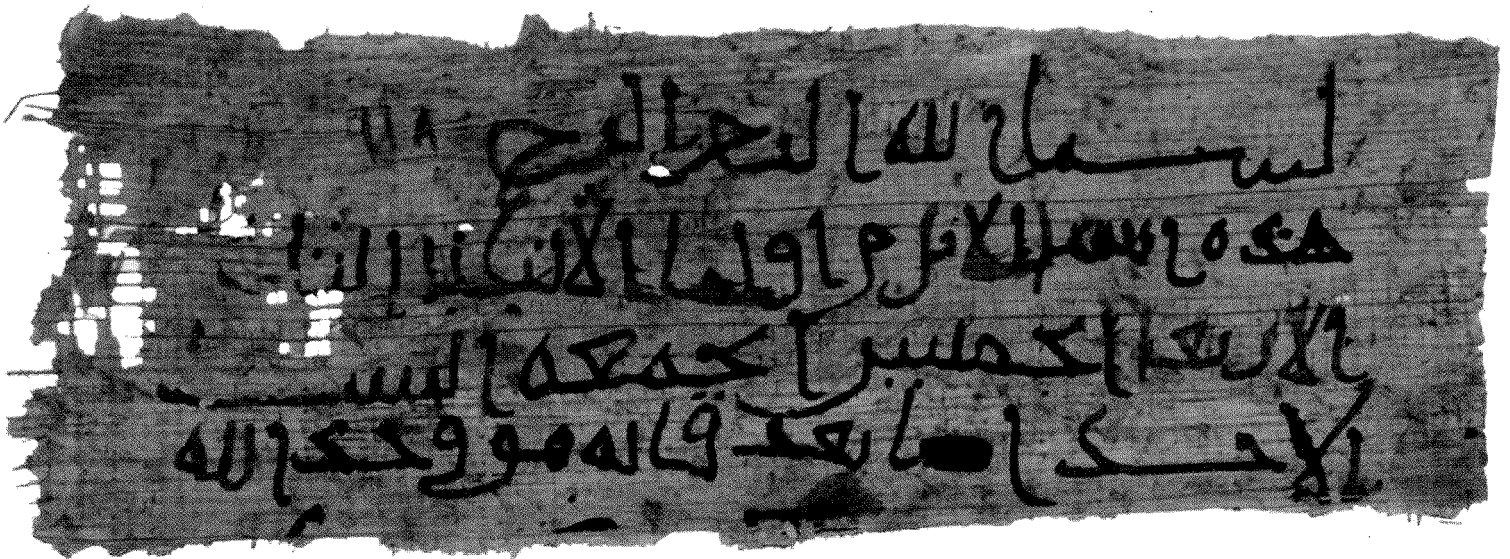 بسم الله الرحمن الرحيم
هذه اسما الايام اولها الاثنين الثلثا
الاربعا الخميس الجمعه السبت
الاحد اما بعد الله